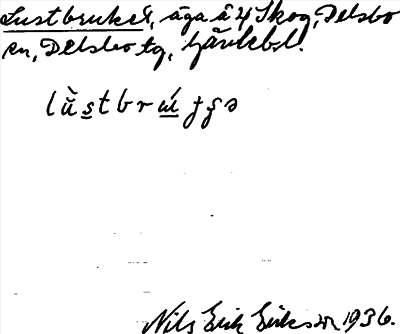 Lustbruket, äga å 4 Skog, Delsbo
sn, Delsbo tg, Gävlebl.
Nils Erik Eriksson 1936.